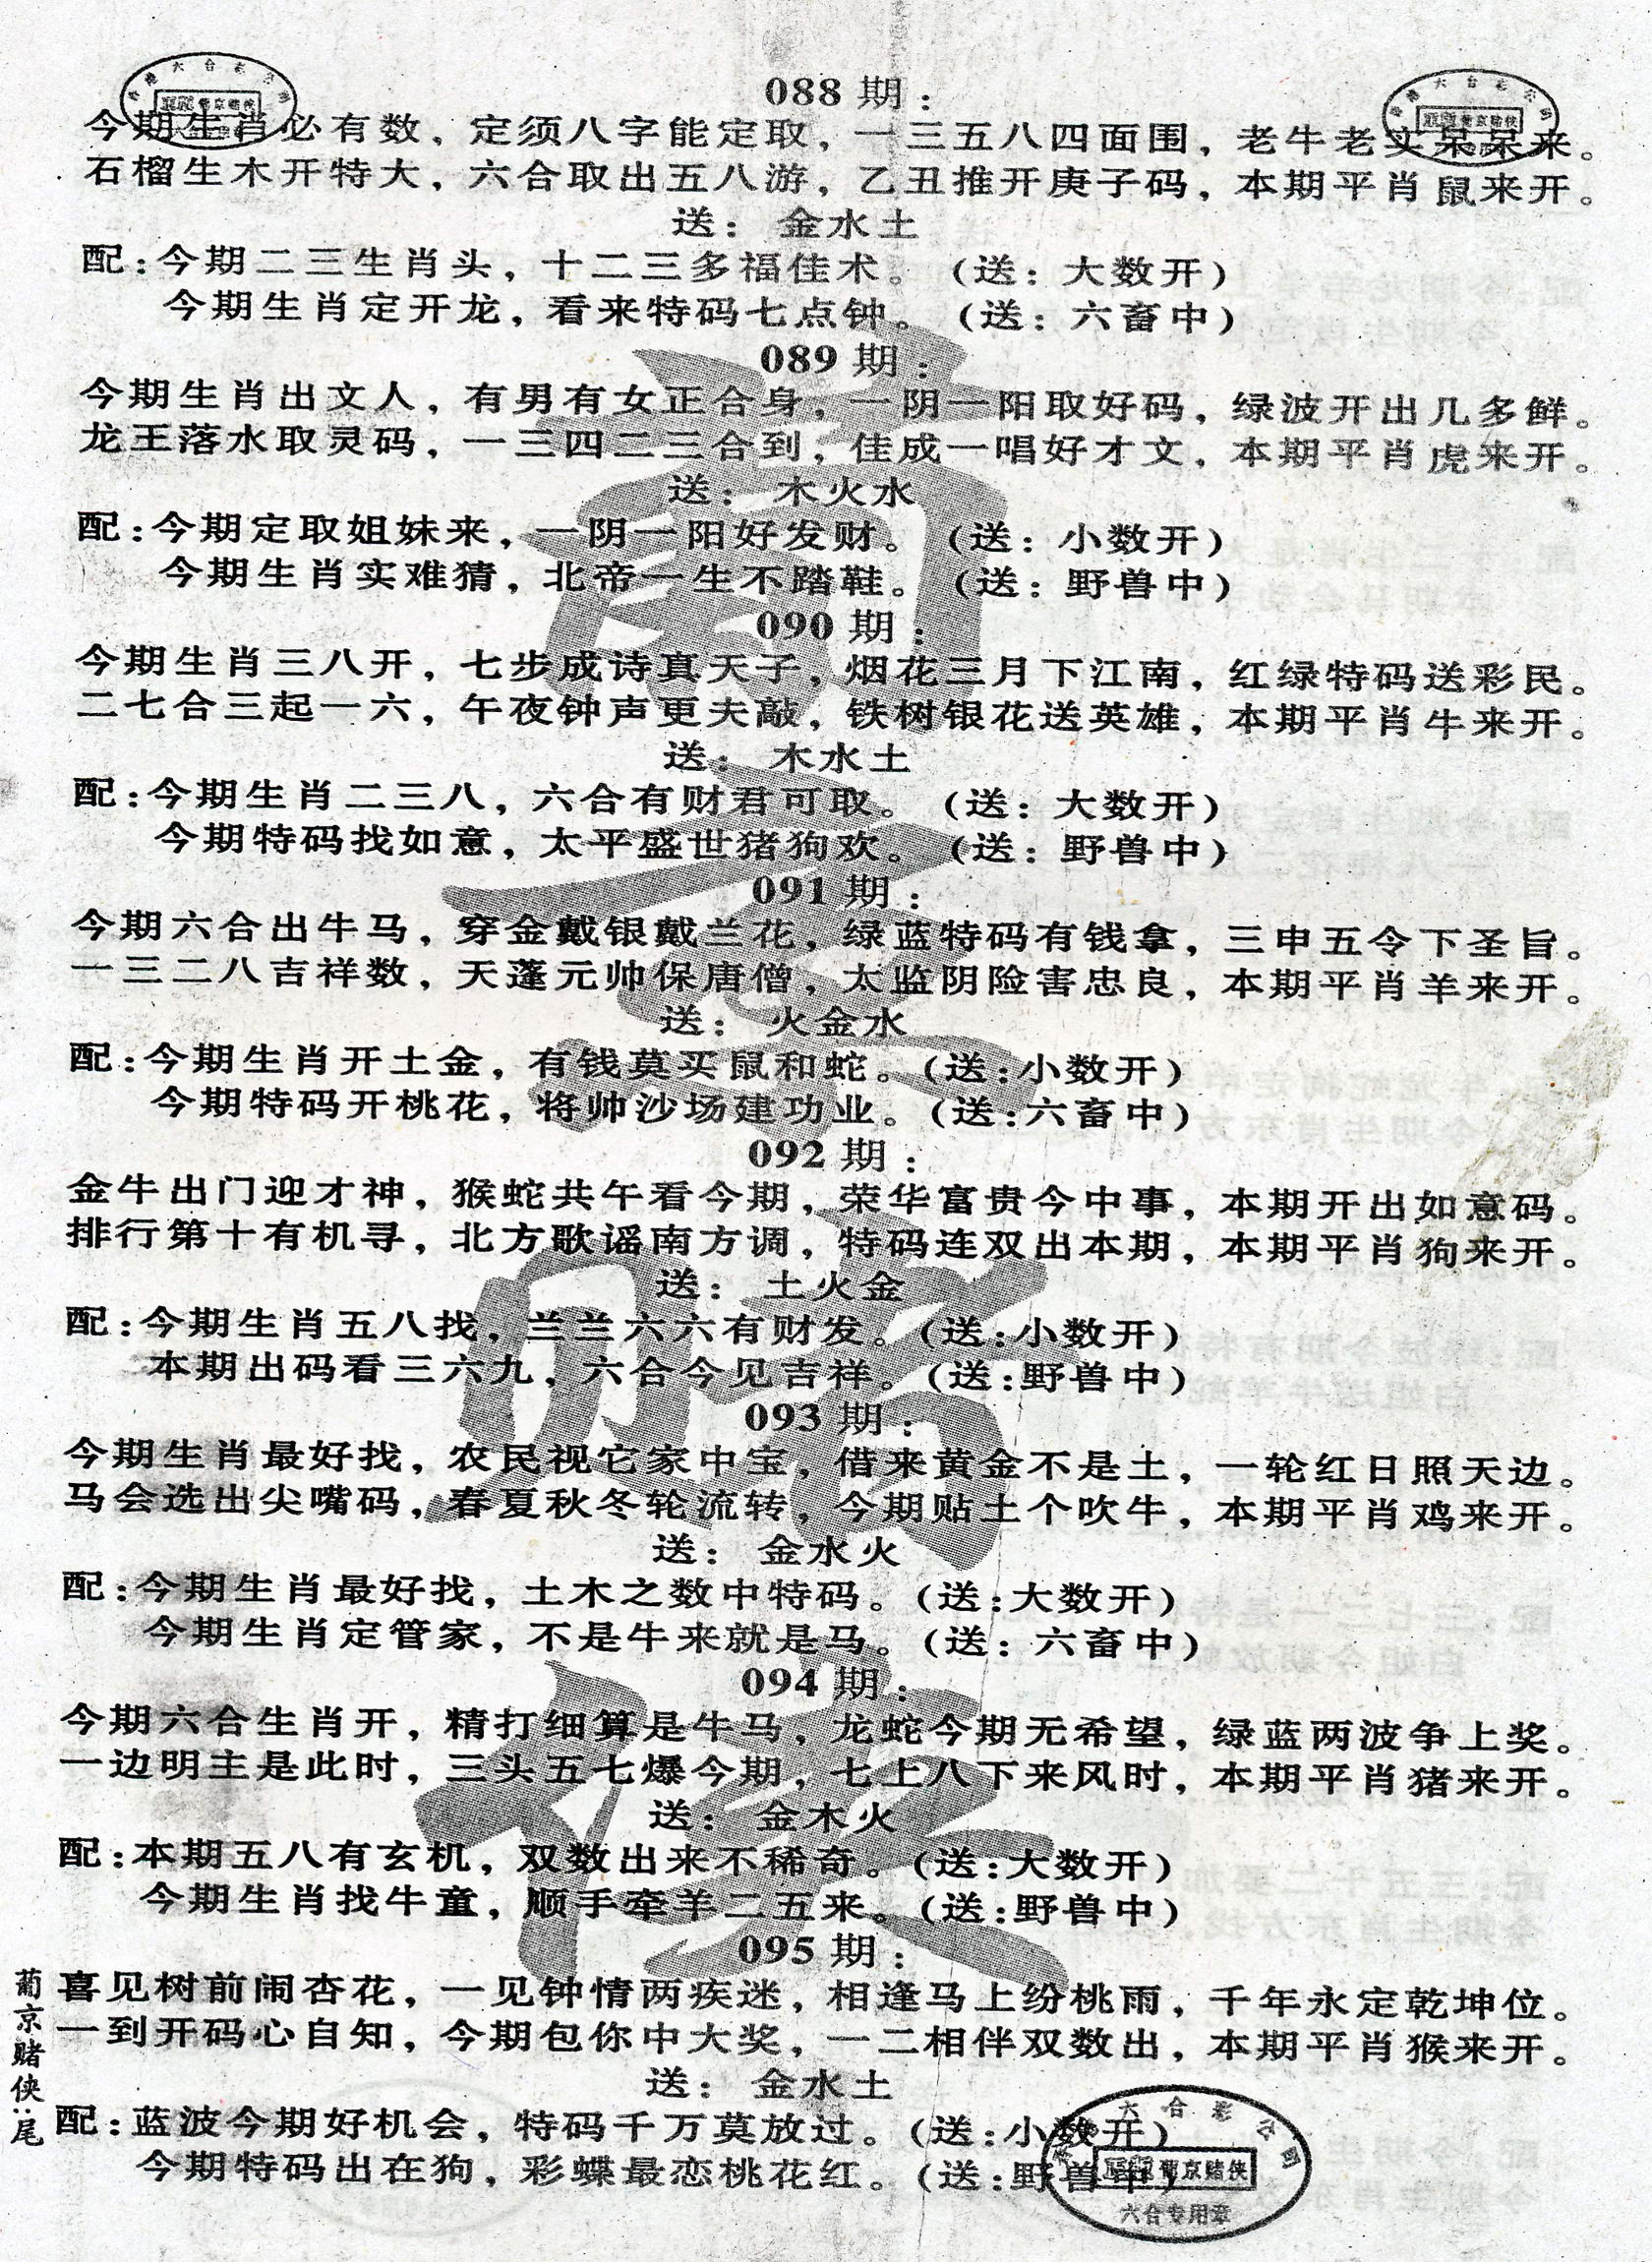 088期：
今期生肖必有数，定须八字能定取，一三五八四面围，老牛老实呆呆来。
石榴生木开特大，六合取出五八游，乙丑推开庚子码，本期平肖鼠来开。
送：金水土
配：今期二三生肖头，十二三多福佳术。（送：大数开）
今期生肖定开龙，看来特码七点钟。（送：六畜中）
089期：
今期生肖出文人，有男有女正合身，一阴一阳取好码，绿波开出几多鲜。
龙王落水取灵码，一三四二三合到，佳成一唱好才文，本期平肖虎来开。
送：木火水
配：今期定取姐妹来，一阴一阳好发财。（送：小数开）
今期生肖实难猜，北帝一生不踏鞋。（送：野兽中）
090期：
今期生肖三八开，七步成诗真天子，烟花三月下江南，红绿特码送彩民。
二七合三起一六，午夜钟声更夫敲，铁树银花送英雄，本期平肖牛来开。
送：木水土
配：今期生肖二三八，六合有财君可取。（送：大数开）
今期特码找如意，太平盛世猪狗欢。（送：野兽中）
091期：
今期六合出牛马，穿金戴银戴兰花，绿蓝特码有钱拿，三申五令下圣旨。
一三二八吉祥数，天蓬元帅保唐僧，太监阴险害忠良，本期平肖羊来开。
送：火金水
配：今期生肖开土金，有钱莫买鼠和蛇。（送：小数开）
今期特码开桃花，将帅沙场建功业。（送：六畜中）
092期：
金牛出门迎才神，猴蛇共午看今期，荣华富贵今中事，本期开出如意码。
排行第十有机寻，北方歌谣南方调，特码连双出本期，本期平肖狗来开。
送：土火金
配：今期生肖五八找，兰兰六六有财发。（送：小数开）
本期出码看三六九，六合今见吉祥。（送：野兽中）
093期：
今期生肖最好找，农民视它家中宝，借来黄金不是土，一轮红日照天边。
马会选出尖嘴码，春夏秋冬轮流转，今期贴土个吹牛，本期平肖鸡来开。
送：金水火
配：今期生肖最好找，土木之数中特码。（送：大数开）
今期生肖定管家，不是牛来就是马。（送：六畜中）
094期：
今期六合生肖开，精打细算是牛马，龙蛇今期无希望，绿蓝两波争上奖。
一边明主是此时，三头五七爆今期，七上八下来风时，本期平肖猪来开。
送：金木火
配：本期五八有玄机，双数出来不稀奇。（送：大数开）
今期生肖找牛童，顺手牵羊二五来。（送：野兽中）
095期：
喜见树前闹杏花，一见钟情两疾迷，相逢马上纷桃雨，千年永定乾坤位。
一到开码心自知，今期包你中大奖，一二相伴双数出，本期平肖猴来开。
送：金水土
配：蓝波今期好机会，特码千万莫放过。（送：小数开）
今期特码出在狗，彩蝶最恋桃花红。（送：野兽中）
葡京赌侠：尾
葡京赌侠
六合专用章